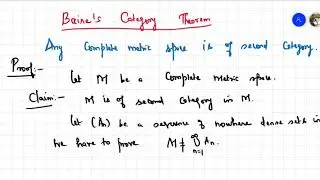 Baire's Category Theorem
Any Complete metric space is of second Category.
Proof:-
Let M be a Complete metric space.
Claim:- M is of second Category in M.
Let (An) be a sequence of nowhere dense sets in
we have to prove M ≠ ∞∪n=1 An.